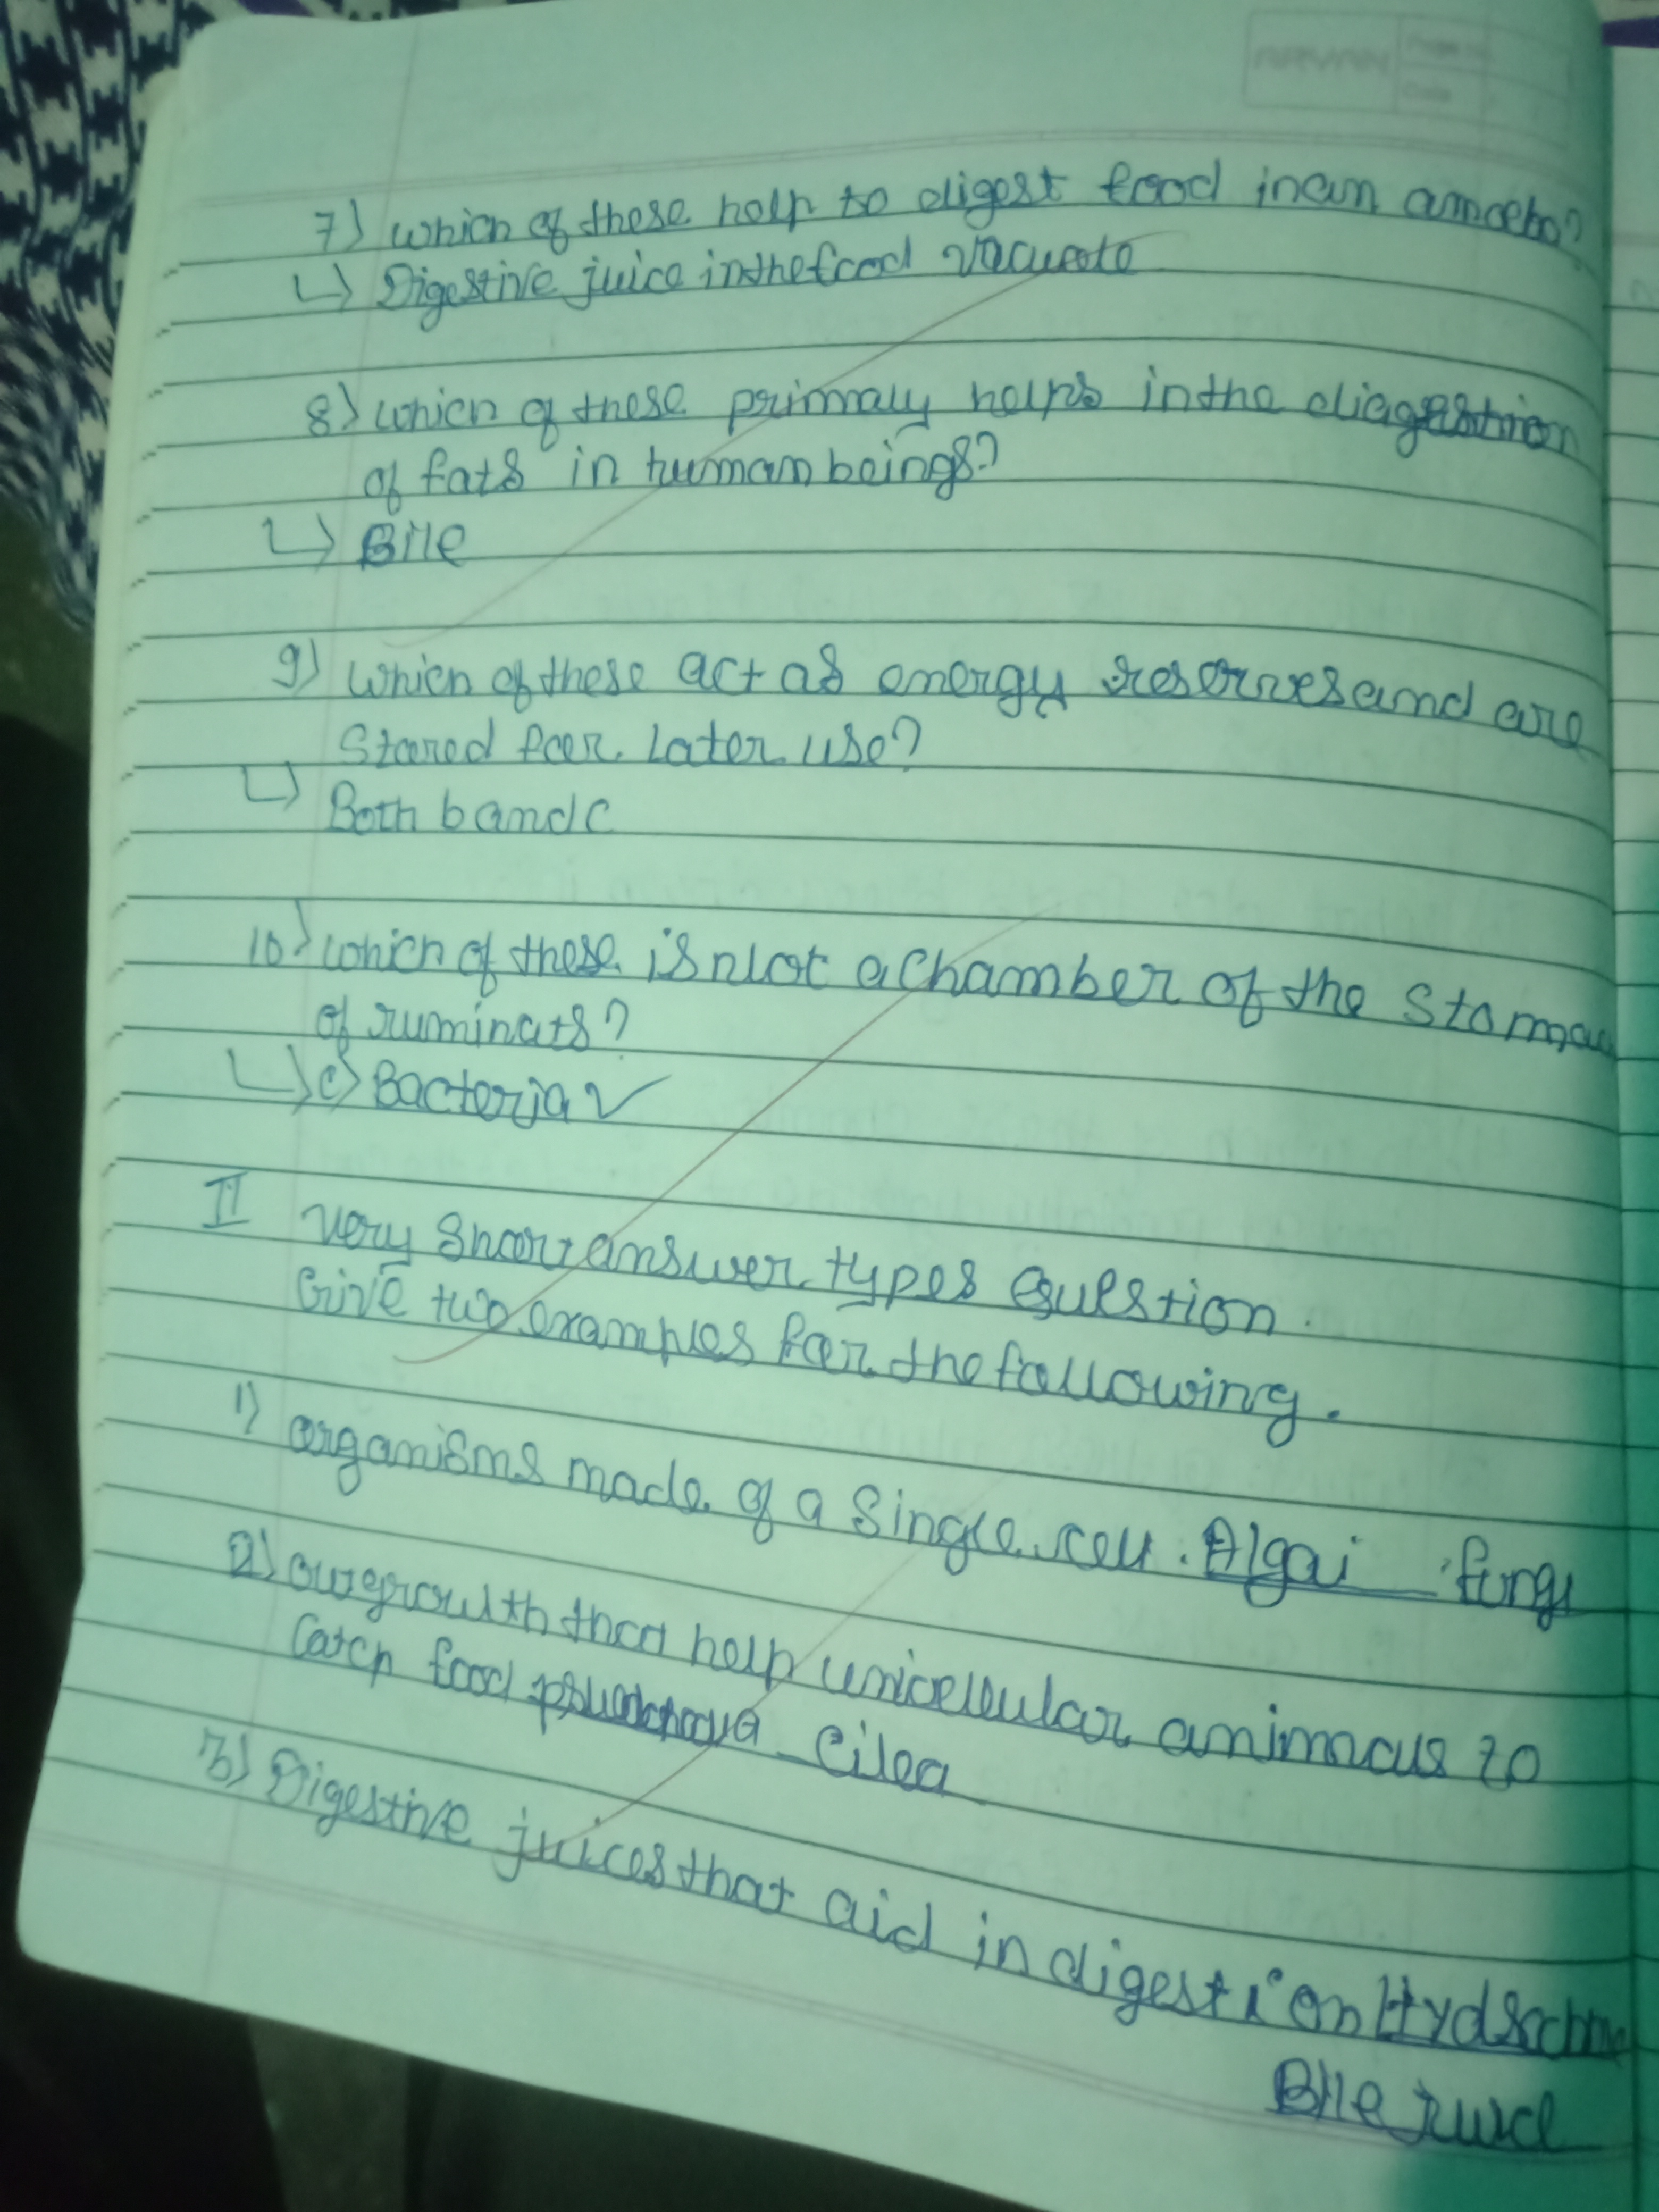 7) which of these help to digest food in an amoeba?
↳ Digestive juice in the food vacuole
8) which of these primaly helps in the diagestion
of fats in human beings?
↳ Bile
9) which of these act as energy reserves and are
Stored for later use?
↳ Both b and c
10) which of these is nlot a chamber of the stomac
of ruminats?
↳ c) Bacteria ✓
II very short answer types Question.
Give two examples for the following.
1) organisms made of a single cell. Algai fungi
2) outgroulth that help unicellular animaus to
catch food Cilea
3) Digestive juices that aid in digestion
Bile juice